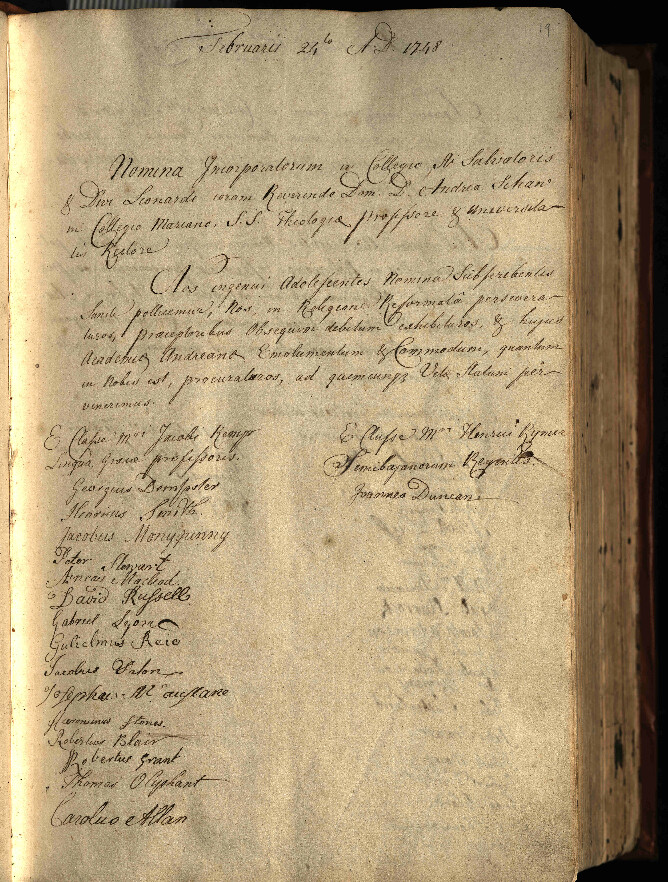 19
Februarii 24to A.D. 1748
Nomina Incorporatorum in Collegio Sti Salvatoris
& Divi Leonardi coram Reverendo Dom. D. Andrea Schaw
in Collegio Mariano, S.S. Theologiæ professore & Universita-
tis Rectore
Nos ingenui Adolescentes Nomina Subscribentes
Sancte pollicemur, Nos, in Religione Reformatâ persevera-
turos, præceptoribus Obsequium debitum exhibituros, & hujus
Academiæ Andreanæ Emolumentum & Commodum, quantum
in Nobis est, procuraturos, ad quemcunq; Vitæ Statum per-
venerimus.
E Classe Mri Jacobi Kemp
Linguæ Græcæ professoris.
Georgius Dempster
Henricus Smith
Jacobus Monypenny
Peter Stewart
Æneas Macleod
David Russell
Gabriel Lyon
Gulielmus Reid
Jacobus
Josephus Mcauslane
Hieronimus Stones
Robertus Blair
Robertus Grant
Thomas Olyphant
Carolus Allan
E Classe Mri Henrici Rymer
Semibajanorum Regentis.
Joannes Duncan